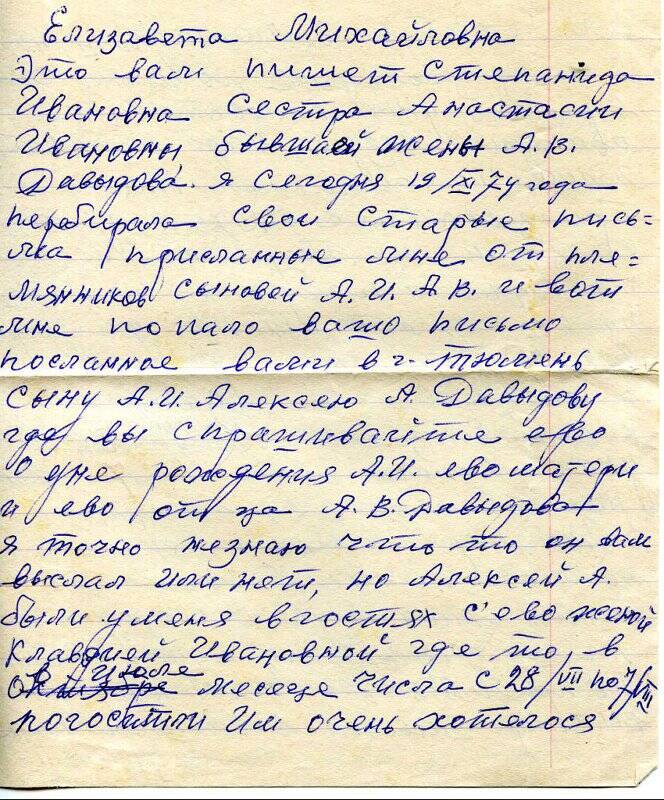 Елизавета Михайловна
Это вам пишет Степанида
Ивановна сестра Анастасии
Ивановны бывшей жены А.В.
Давыдова. я сегодня 19/XI 74 года
перебирала свои старые пись=
ма присланные мне от пле=
мянников сыновей А.И. А.В. и вот
мне попало вашо письмо
посланное вами в г. Тюмень
сыну А.И. Алексею А. Давыдову
где вы спрашивайте ево
о дне рождения А.И. ево матери
и ево отца А.В. Давыдова
я точно незнаю что то он вам
выслал или нет, но Алексей А.
были уменя вгостях с'ево женой
Клавдией Ивановной где то в
в Июле
месеце числа с 28/VII по 7/VIII
погостили Им очень хотелося